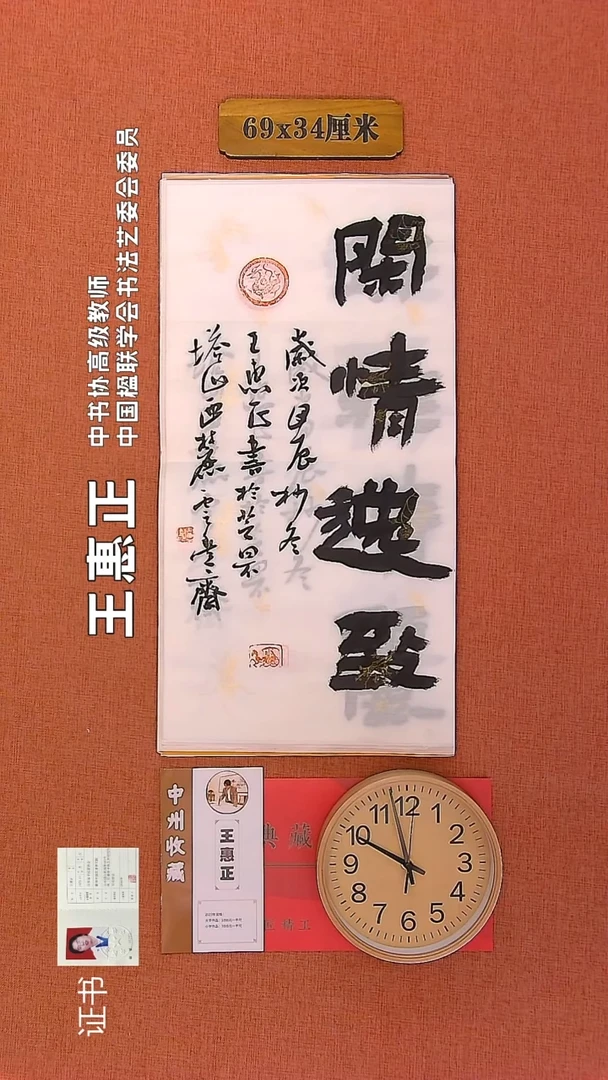 69x34厘米
閒情逸致
歲次甲辰杪冬
王惠正書於芝罘
塔山西麓雲堂齋
中书协高级教师
中国楹联学会书法艺委会委员
王惠正
证书
王惠正
典藏
11 12 1
10 2
9 3
8 4
7 6 5